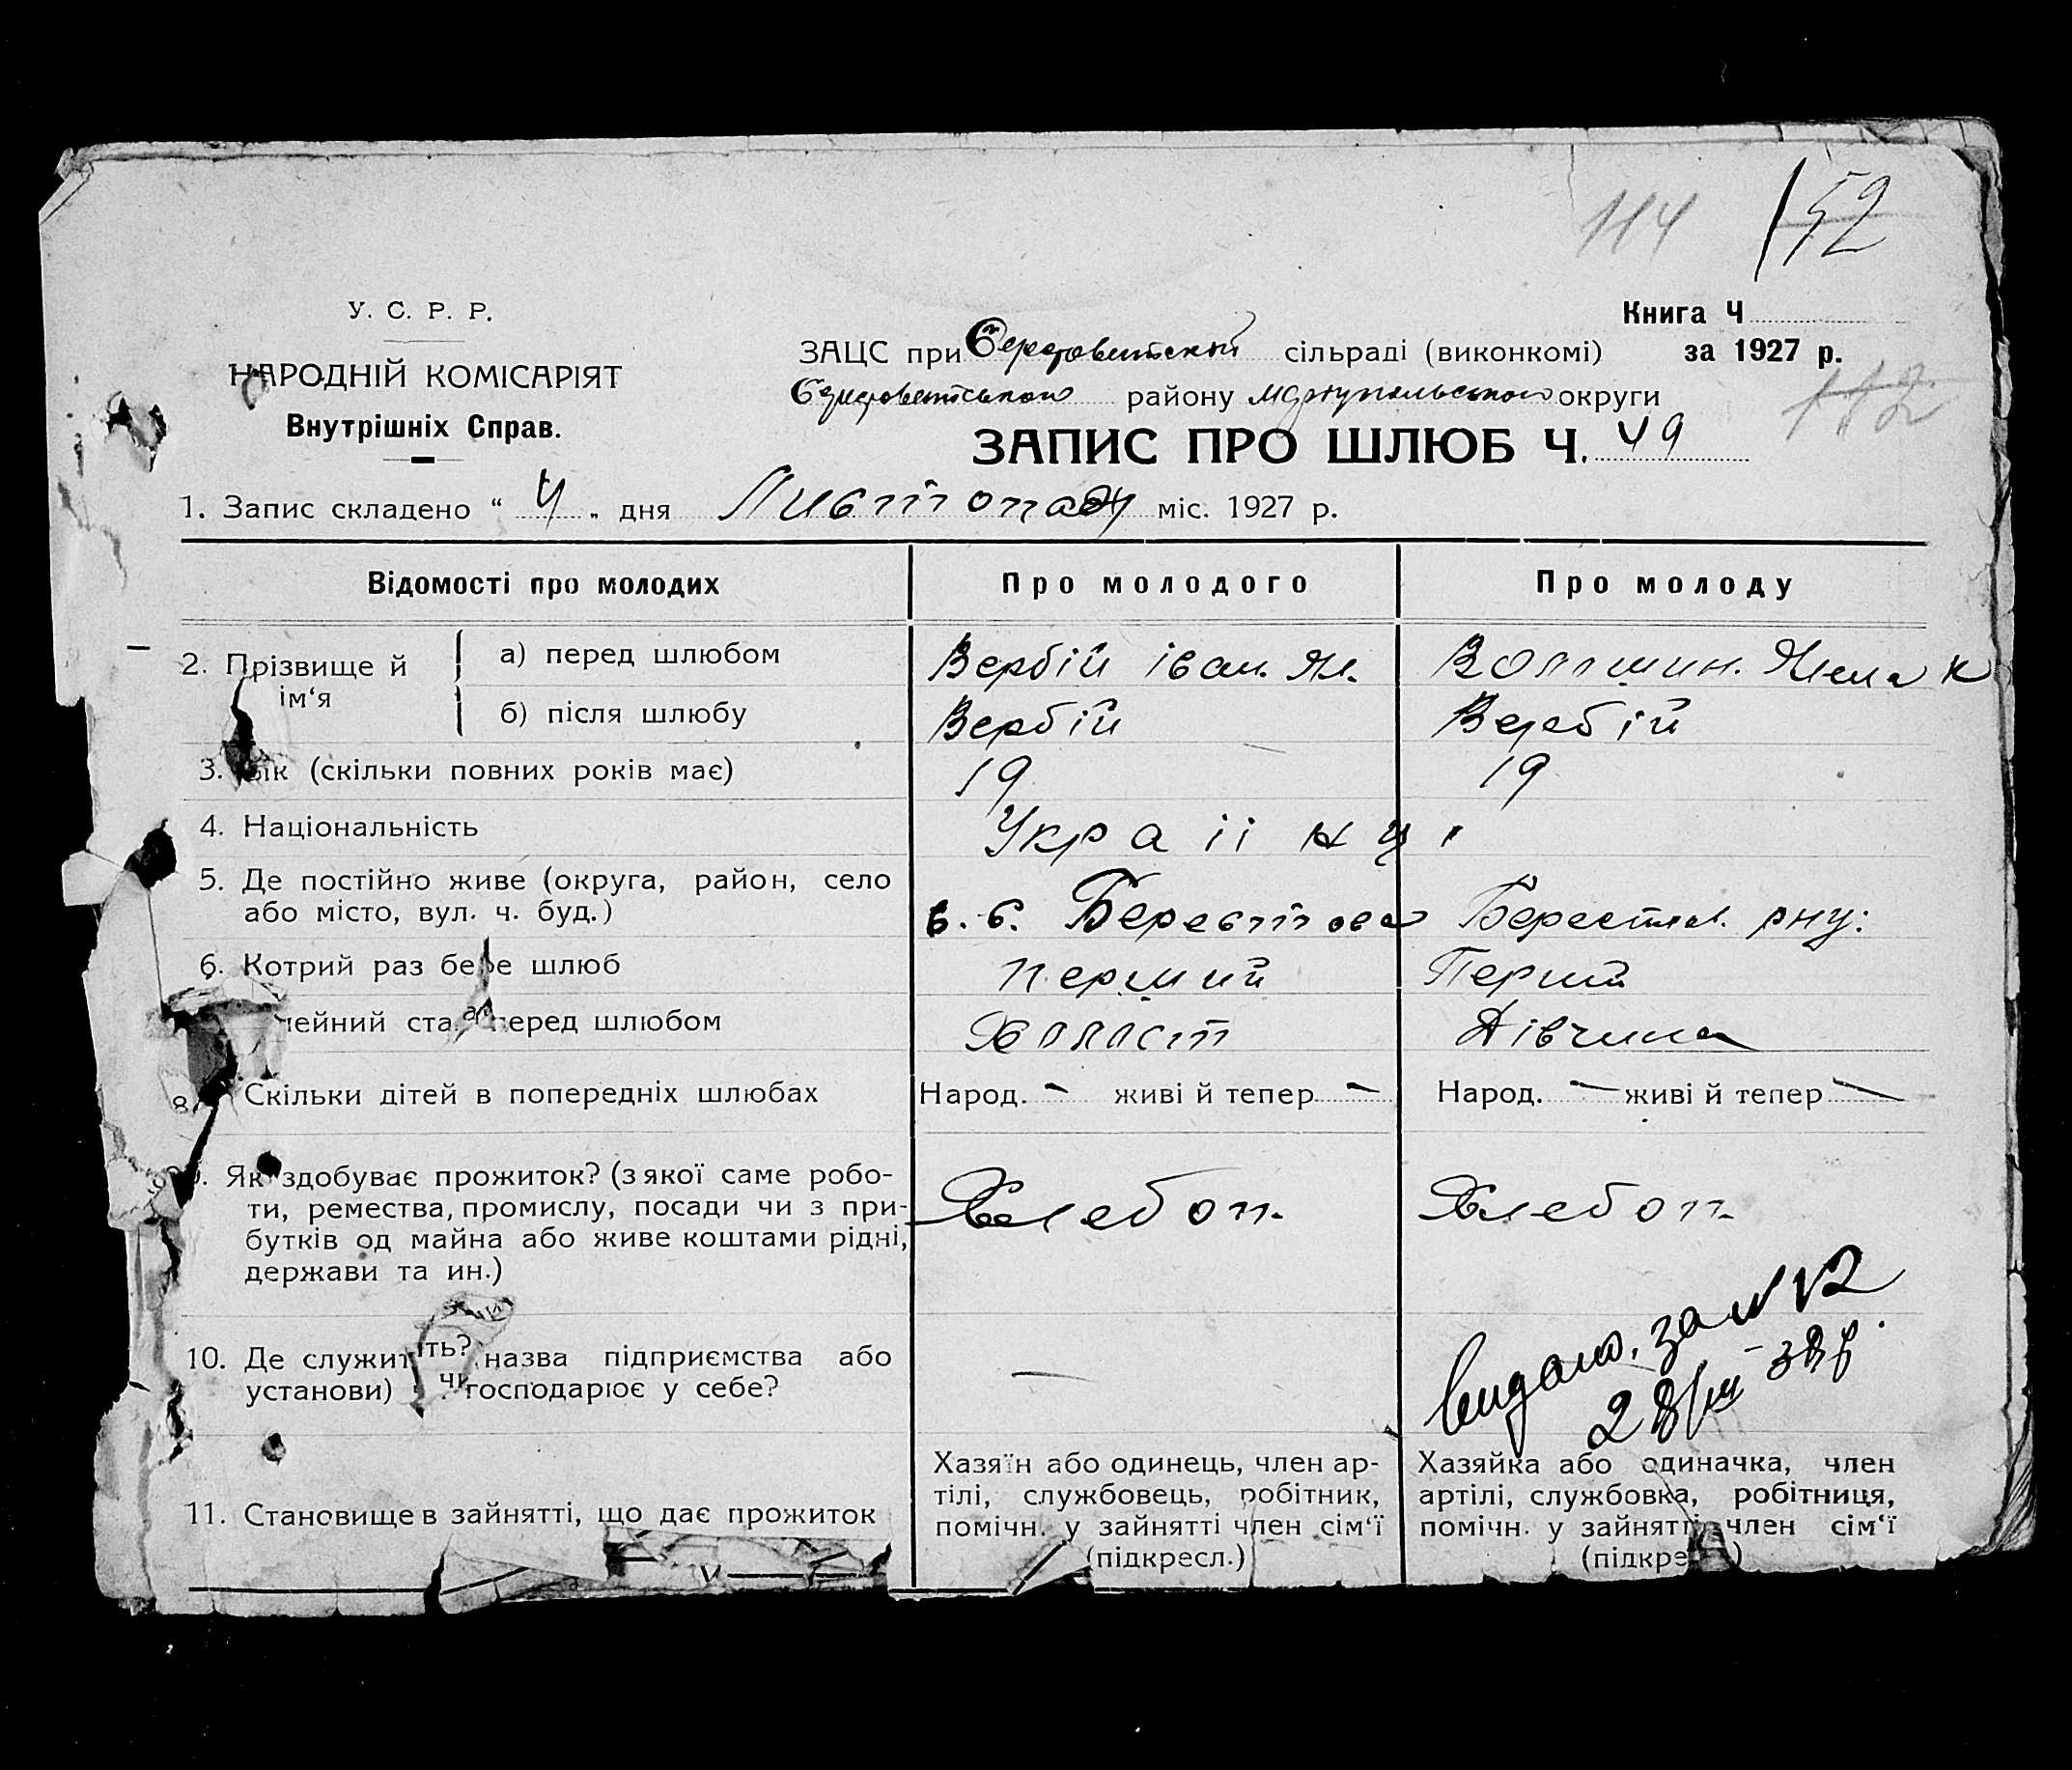 114 152
У. С. Р. Р.
НАРОДНІЙ КОМІСАРІЯТ
Внутрішніх Справ.
Книга Ч
ЗАЦС при сільраді (виконкомі) за 1927 р.
району Маріупільського округи
112
ЗАПИС ПРО ШЛЮБ Ч. 49
1. Запис складено “ 4 „ дня Листопаду міс. 1927 р.
Відомості про молодих Про молодого Про молоду
2. Прізвище й ім‘я
а) перед шлюбом Вербій Іван. Як.
б) після шлюбу Вербій Вербій
3. Вік (скільки повних років має) 19 19
4. Національність Украіінці
5. Де постійно живе (округа, район, село
або місто, вул. ч. буд.) с. Берестове Берестов. рну:
6. Котрий раз бере шлюб перший Перший
перед шлюбом Холост Дівчина
8. Скільки дітей в попередніх шлюбах Народ. – живі й тепер – Народ. – живі й тепер –
9. Як здобуває прожиток? (з якої саме робо-
ти, ремества, промислу, посади чи з при-
бутків од майна або живе коштами рідні,
держави та ин.)
Хлебоп. Хлебоп.
10. Де служить? назва підприємства або
установи) чи господарює у себе?
—
видано. за N 12
28/III - 38р.
11. Становище в зайнятті, що дає прожиток
Хазяїн або одинець, член ар-
тілі, службовець, робітник,
помічн. у зайнятті член сім‘ї
(підкресл.)
Хазяйка або одиначка, член
артілі, службовка, робітниця,
помічн. у зайнятті член сім‘ї